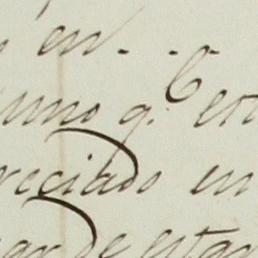 en. . .
uno q.e est
reciado en
ar de estar